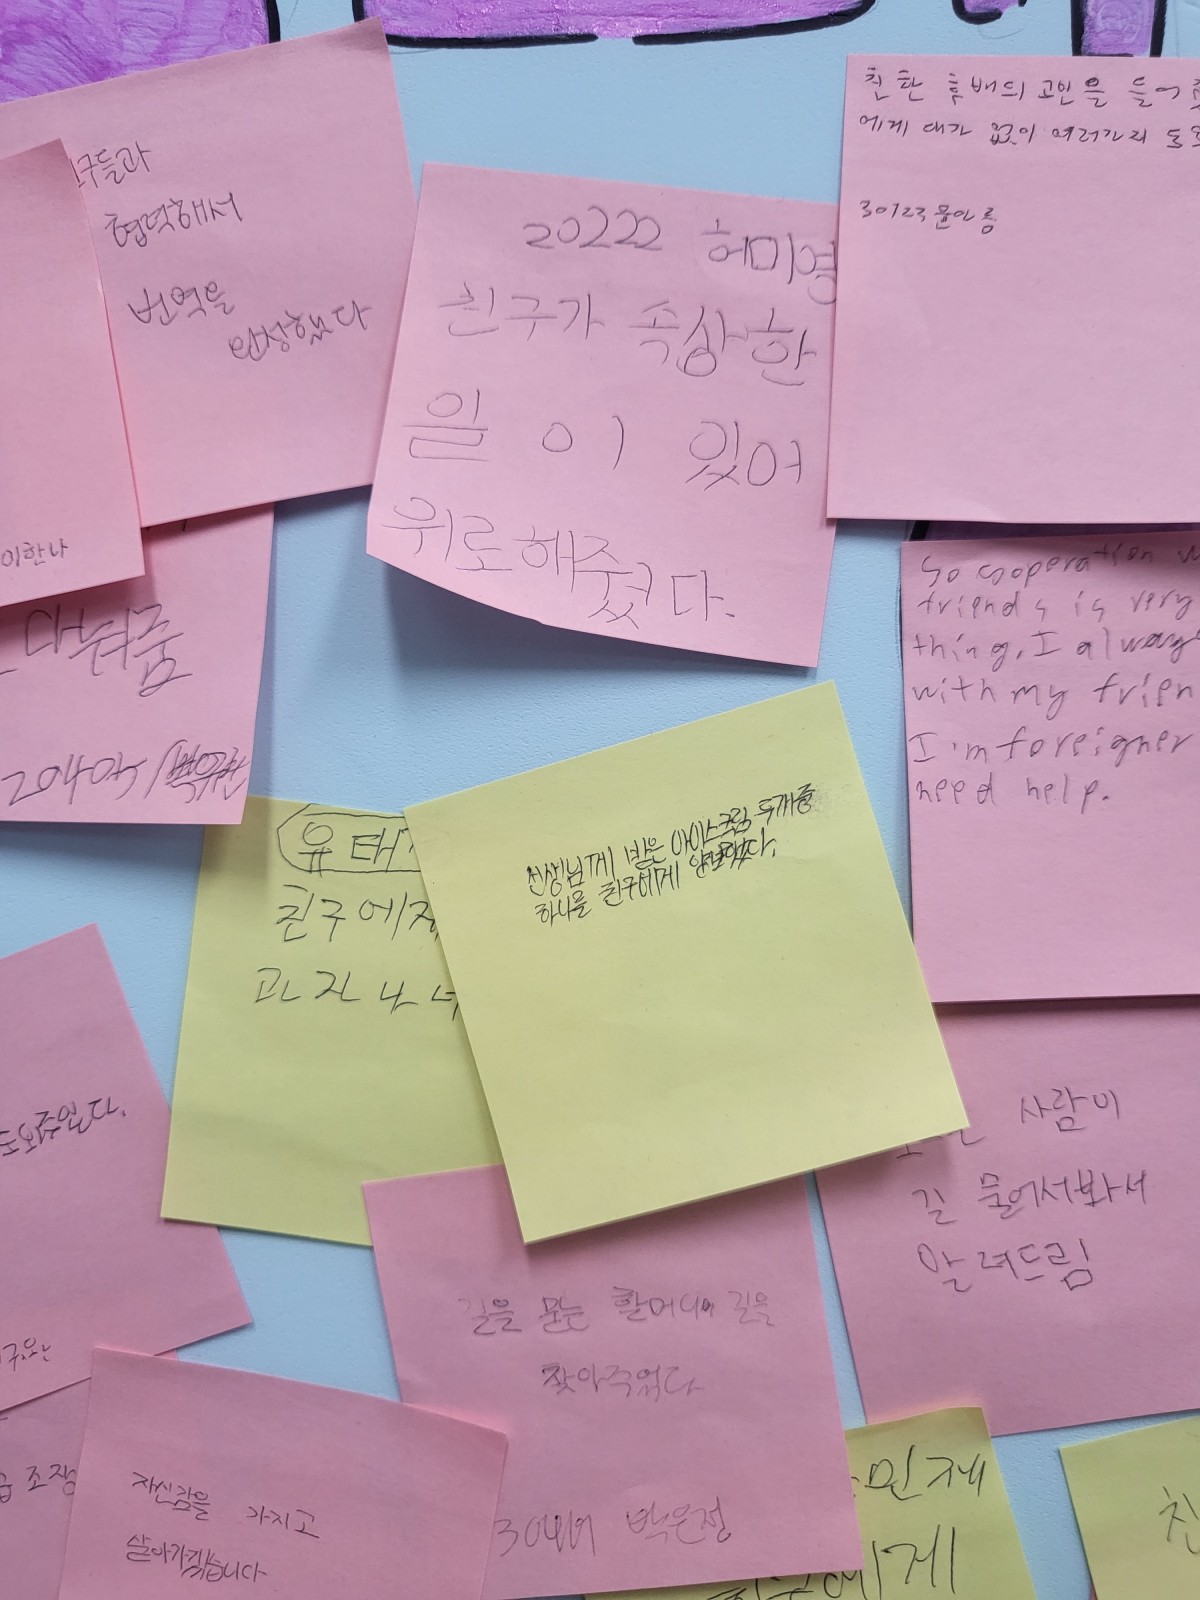 구들과
협력해서
번역을
완성했다
이한나
나눠줌
20405
20222 허미영
친구가 속상한
일이 있어
위로해줬다.
친한 후배의 고민을 들어
에게 대가 없이 여러가지
30123 윤아름
So cooperation
friends is very
thing. I always
with my frien
I'm foreigner
need help.
유태
친구에게
과자 나눠
선생님께 받은 아이스크림 두개중
하나를 친구에게 양보했다.
도와주었다.
사람이
길 물어서봐서
알려드림
길을 묻는 할머니에 길을
찾아주었다
박은정
조장
자신감을 가지고
살아가겠습니다
민재
에게
친